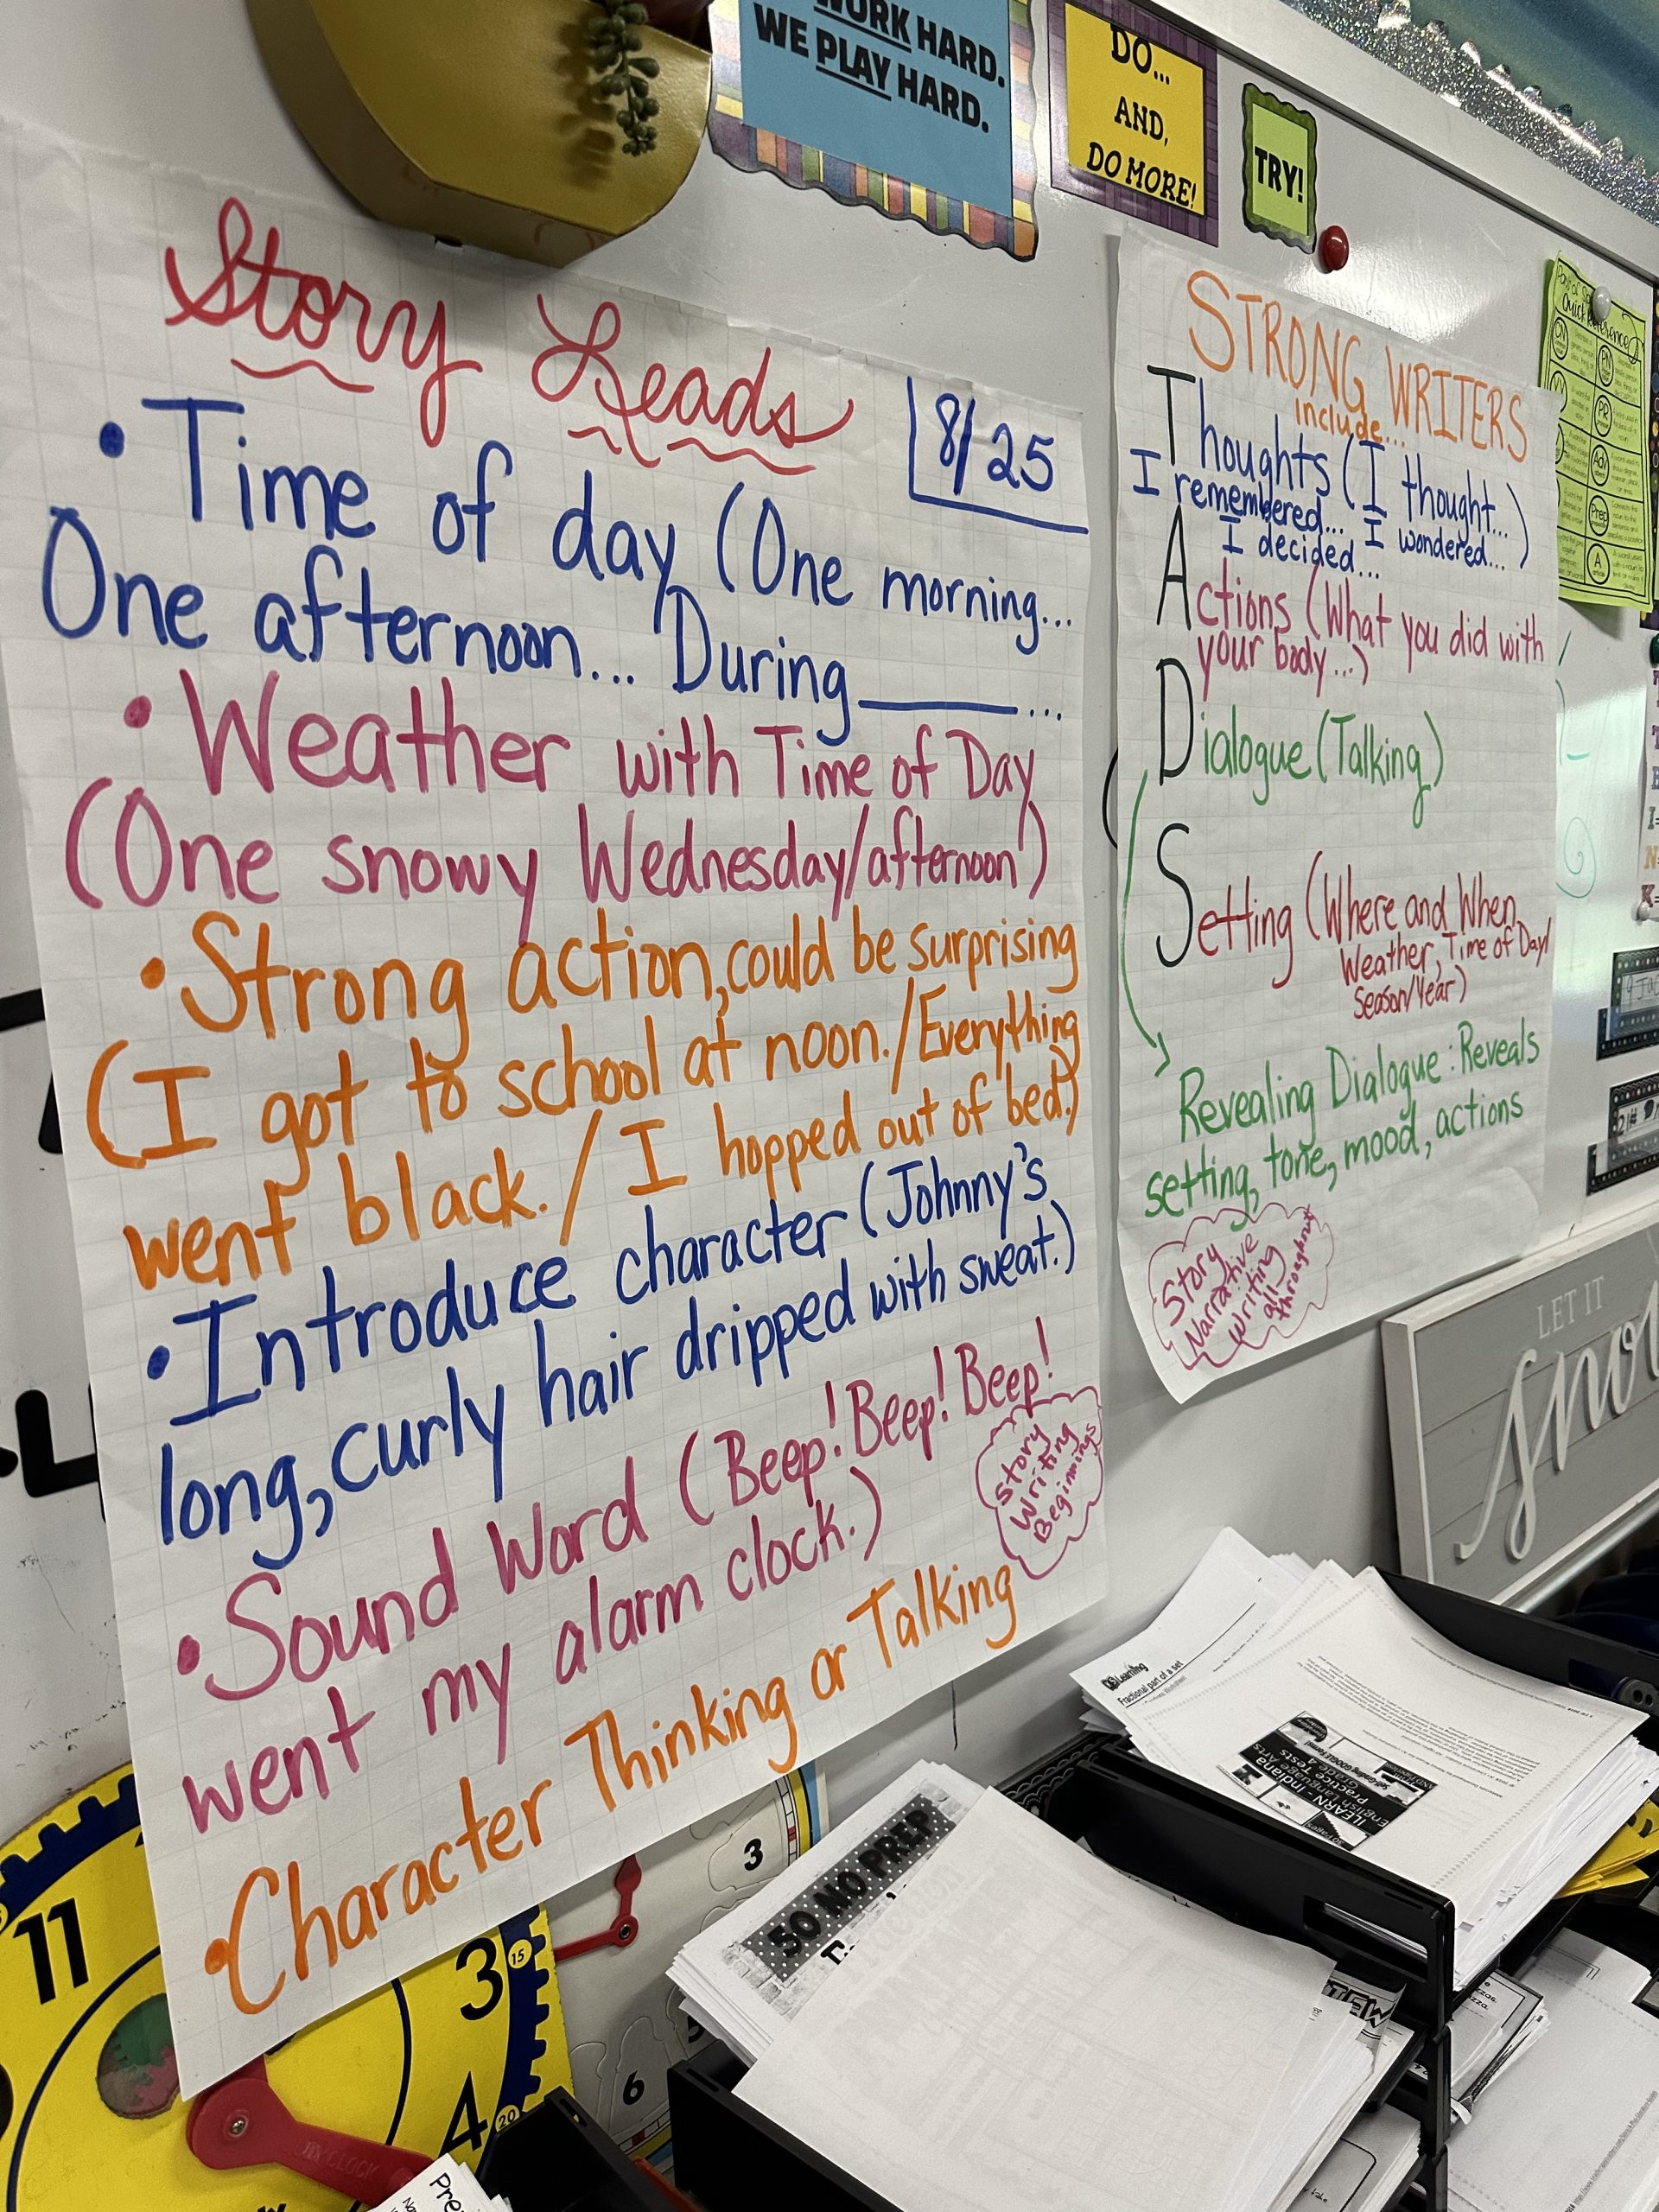 WORK HARD.
WE PLAY HARD.
DO...
AND,
DO MORE!
TRY!
Story Leads
8/25
• Time of day (One morning...
One afternoon... During ______ ...
• Weather with Time of Day
(One snowy Wednesday/afternoon)
• Strong action, could be surprising
(I got to school at noon./Everything
went black./I hopped out of bed.)
• Introduce character (Johnny's
long, curly hair dripped with sweat.)
• Sound Word (Beep! Beep! Beep!
went my alarm clock.)
• Character Thinking or Talking
Story
Writing
Beginnings
STRONG WRITERS
include...
Thoughts (I thought...
I remembered... I wondered...)
I decided...
Actions (What you did with
your body...)
Dialogue (Talking)
Setting (Where and When,
Weather, Time of Day/
Season/Year)
Revealing Dialogue: Reveals
setting, tone, mood, actions
Story
Narrative
Writing
all
throughout
Quick Reference
PR
Adv
Prep
A
LET IT
Learning
Fractional part of a set
ILEARN - Indiana
English Language Arts
Practice Tests
Grade 4
50 NO PREP
11
3
15
4
20
3
6